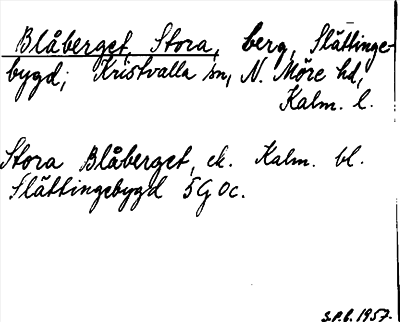 Blåberget, Stora, berg, Slättinge-
bygd; Kristvalla sn, N. Möre hd,
Kalm. l.
Stora Blåberget, ek. Kalm. bl.
Slättingebygd 5G0c.
S.P.B. 1957.